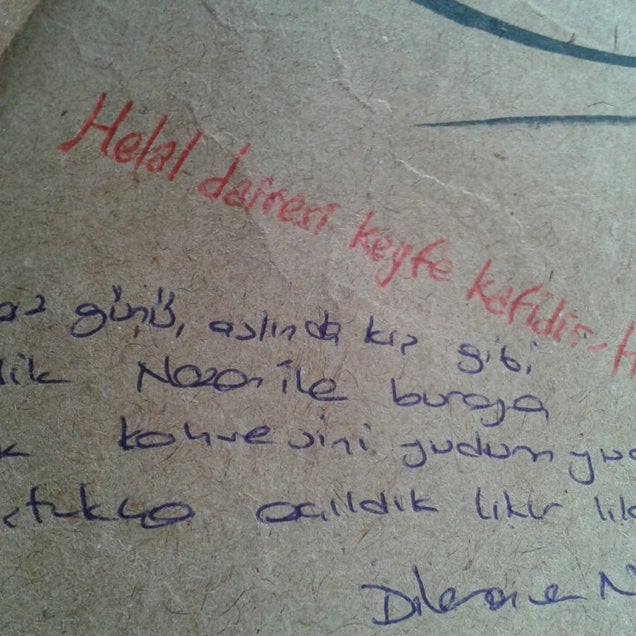 Helal dairesi keyfe kefidir-H
az günü, aslında kış gibi
lik Nazan ile buraya
k kahvesini yudum yud
çtukça açıldık likır lik
Dilara ve N